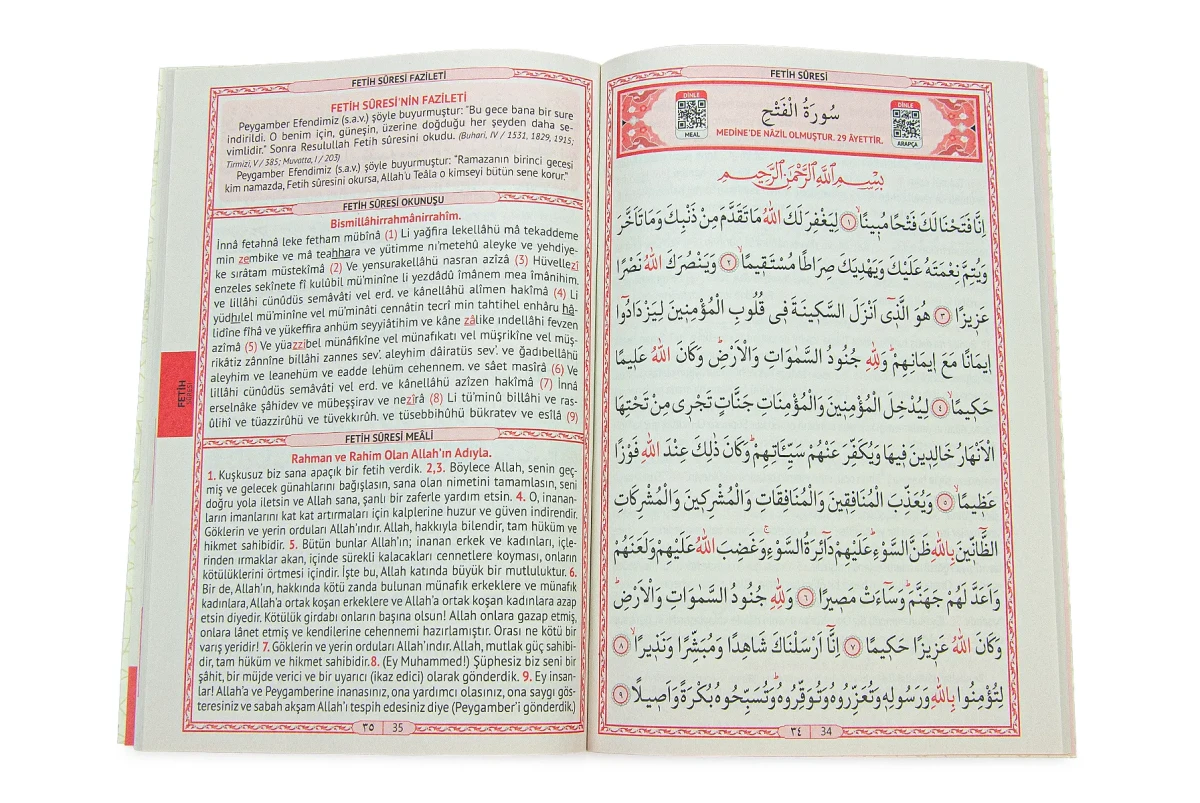 FETİH SÛRESİ
سُورَةُ الْفَتْحِ
DİNLE
MEAL
DİNLE
ARAPÇA
MEDİNE'DE NÂZİL OLMUŞTUR. 29 ÂYETTİR.
بِسْمِ اللّٰهِ الرَّحْمٰنِ الرَّحِيمِ
اِنَّا فَتَحْنَا لَكَ فَتْحًا مُبٖينًا ﴿١﴾ لِيَغْفِرَ لَكَ اللّٰهُ مَا تَقَدَّمَ مِنْ ذَنْبِكَ وَمَا تَاَخَّرَ
وَيُتِمَّ نِعْمَتَهُ عَلَيْكَ وَيَهْدِيَكَ صِرَاطًا مُسْتَقٖيمًا ﴿٢﴾ وَيَنْصُرَكَ اللّٰهُ نَصْرًا
عَزٖيزًا ﴿٣﴾ هُوَ الَّذٖٓى اَنْزَلَ السَّكٖينَةَ فٖى قُلُوبِ الْمُؤْمِنٖينَ لِيَزْدَادُٓوا
اٖيمَانًا مَعَ اٖيمَانِهِمْ وَلِلّٰهِ جُنُودُ السَّمٰوَاتِ وَالْاَرْضِ وَكَانَ اللّٰهُ عَلٖيمًا
حَكٖيمًا ﴿٤﴾ لِيُدْخِلَ الْمُؤْمِنٖينَ وَالْمُؤْمِنَاتِ جَنَّاتٍ تَجْرٖى مِنْ تَحْتِهَا
الْاَنْهَارُ خَالِدٖينَ فٖيهَا وَيُكَفِّرَ عَنْهُمْ سَيِّـَٔاتِهِمْ وَكَانَ ذٰلِكَ عِنْدَ اللّٰهِ فَوْزًا
عَظٖيمًا ﴿٥﴾ وَيُعَذِّبَ الْمُنَافِقٖينَ وَالْمُنَافِقَاتِ وَالْمُشْرِكٖينَ وَالْمُشْرِكَاتِ
الظَّٓانّٖينَ بِاللّٰهِ ظَنَّ السَّوْءِ عَلَيْهِمْ دَٓائِرَةُ السَّوْءِ وَغَضِبَ اللّٰهُ عَلَيْهِمْ وَلَعَنَهُمْ
وَاَعَدَّ لَهُمْ جَهَنَّمَ وَسَٓاءَتْ مَصٖيرًا ﴿٦﴾ وَلِلّٰهِ جُنُودُ السَّمٰوَاتِ وَالْاَرْضِ
وَكَانَ اللّٰهُ عَزٖيزًا حَكٖيمًا ﴿٧﴾ اِنَّٓا اَرْسَلْنَاكَ شَاهِدًا وَمُبَشِّرًا وَنَذٖيرًا ﴿٨﴾
لِتُؤْمِنُوا بِاللّٰهِ وَرَسُولِهٖ وَتُعَزِّرُوهُ وَتُوَقِّرُوهُ وَتُسَبِّحُوهُ بُكْرَةً وَاَصٖيلًا ﴿٩﴾
٣٤ 34
FETİH SÛRESİ FAZİLETİ
FETİH SÛRESİ'NİN FAZİLETİ
Peygamber Efendimiz (s.a.v.) şöyle buyurmuştur: "Bu gece bana bir sure
indirildi. O benim için, güneşin, üzerine doğduğu her şeyden daha se-
vimlidir." Sonra Resulullah Fetih sûresini okudu. (Buhari, IV / 1531, 1829, 1915;
Tirmizi, V / 385; Muvatta, I / 203)
Peygamber Efendimiz (s.a.v.) şöyle buyurmuştur: "Ramazanın birinci gecesi
kim namazda, Fetih sûresini okursa, Allah'u Teâla o kimseyi bütün sene korur."
FETİH SÛRESİ OKUNUŞU
Bismillâhirrahmânirrahîm.
İnnâ fetahnâ leke fetham mübînâ (1) Li yağfira lekellâhü mâ tekaddeme
min zembike ve mâ teahhara ve yütimme ni'metehû aleyke ve yehdiye-
ke sırâtam müstekîmâ (2) Ve yensurakellâhü nasran azîzâ (3) Hüvellezî
enzeles sekînete fî kulûbil mü'minîne li yezdâdû îmânem mea îmânihim.
ve lillâhi cünûdüs semâvâti vel erd. ve kânellâhü alîmen hakîmâ (4) Li
yüdhılel mü'minîne vel mü'minâti cennâtin tecrî min tahtihel enhâru hâ-
lidîne fîhâ ve yükeffira anhüm seyyiâtihim ve kâne zâlike indellâhi fevzen
azîmâ (5) Ve yüazzibel münâfikîne vel münafikatı vel müşrikîne vel müş-
rikâtiz zânnîne billâhi zannes sev'. aleyhim dâiratüs sev'. ve ğadıbellâhü
aleyhim ve leanehüm ve eadde lehüm cehennem. ve sâet masîrâ (6) Ve
lillâhi cünûdüs semâvâti vel erd. ve kânellâhü azîzen hakîmâ (7) İnnâ
erselnâke şâhidev ve mübeşşirav ve nezîrâ (8) Li tü'minû billâhi ve ras-
ûlihî ve tüazzirûhü ve tüvekkırûh. ve tüsebbihûhü bükratev ve esîlâ (9)
FETİH SÛRESİ MEÂLİ
Rahman ve Rahim Olan Allah'ın Adıyla.
1. Kuşkusuz biz sana apaçık bir fetih verdik. 2,3. Böylece Allah, senin geç-
miş ve gelecek günahlarını bağışlasın, sana olan nimetini tamamlasın, seni
doğru yola iletsin ve Allah sana, şanlı bir zaferle yardım etsin. 4. O, inanan-
ların imanlarını kat kat artırmaları için kalplerine huzur ve güven indirendir.
Göklerin ve yerin orduları Allah'ındır. Allah, hakkıyla bilendir, tam hüküm ve
hikmet sahibidir. 5. Bütün bunlar Allah'ın; inanan erkek ve kadınları, içle-
rinden ırmaklar akan, içinde sürekli kalacakları cennetlere koyması, onların
kötülüklerini örtmesi içindir. İşte bu, Allah katında büyük bir mutluluktur. 6.
Bir de, Allah'ın, hakkında kötü zanda bulunan münafık erkeklere ve münafık
kadınlara, Allah'a ortak koşan erkeklere ve Allah'a ortak koşan kadınlara azap
etsin diyedir. Kötülük girdabı onların başına olsun! Allah onlara gazap etmiş,
onlara lânet etmiş ve kendilerine cehennemi hazırlamıştır. Orası ne kötü bir
varış yeridir! 7. Göklerin ve yerin orduları Allah'ındır. Allah, mutlak güç sahibi-
dir, tam hüküm ve hikmet sahibidir. 8. (Ey Muhammed!) Şüphesiz biz seni bir
şâhit, bir müjde verici ve bir uyarıcı (ikaz edici) olarak gönderdik. 9. Ey insan-
lar! Allah'a ve Peygamberine inanasınız, ona yardımcı olasınız, ona saygı gös-
teresiniz ve sabah akşam Allah'ı tespih edesiniz diye (Peygamber'i gönderdik.)
٣٥ 35
FETİH
SÛRESİ